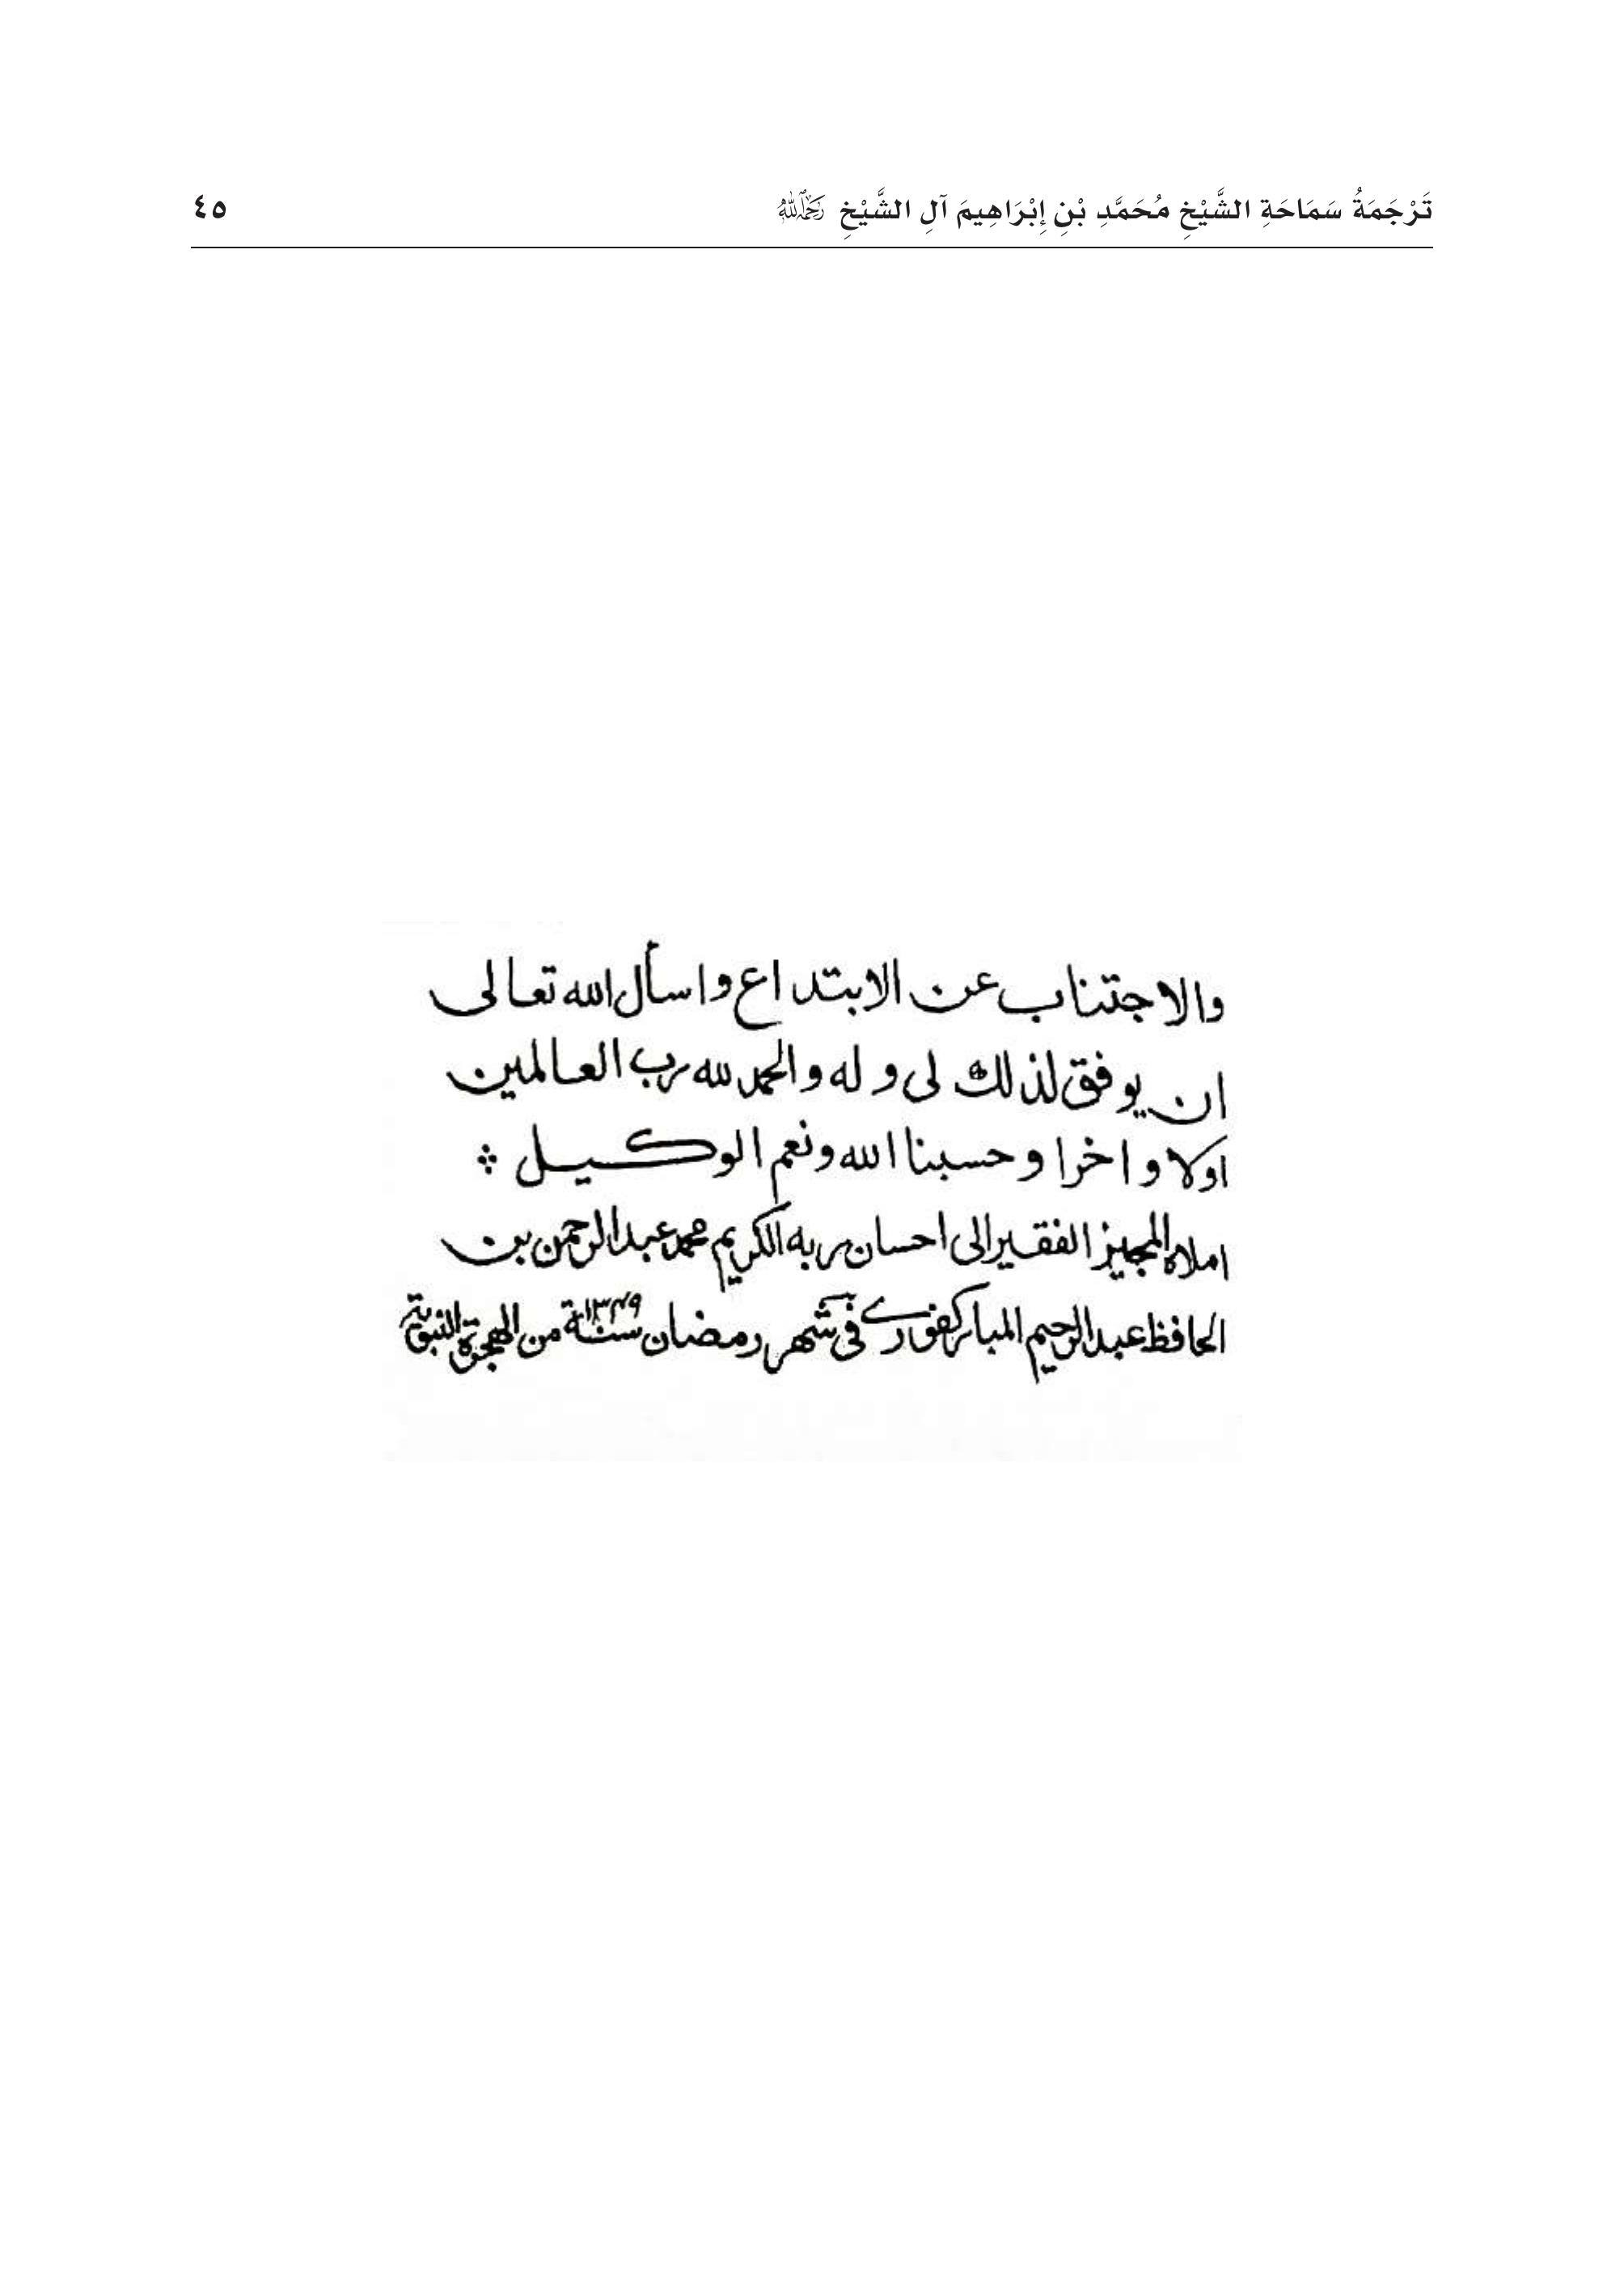 تَرْجَمَةُ سَمَاحَةِ الشَّيْخِ مُحَمَّدِ بْنِ إِبْرَاهِيمَ آلِ الشَّيْخِ رَحِمَهُ اللَّهُ ٤٥
والاجتناب عن الابتداع واسأل الله تعالى
ان يوفق لذلك لى وله والحمد لله رب العالمين
اولا واخرا وحسبنا الله ونعم الوكيل
املاه المجيز الفقير الى احسان ربه الكريم محمد عبد الرحمن بن
الحافظ عبد الرحيم المباركفورى فى شهر رمضان سنة ١٣٤٩ من الهجرة النبوية